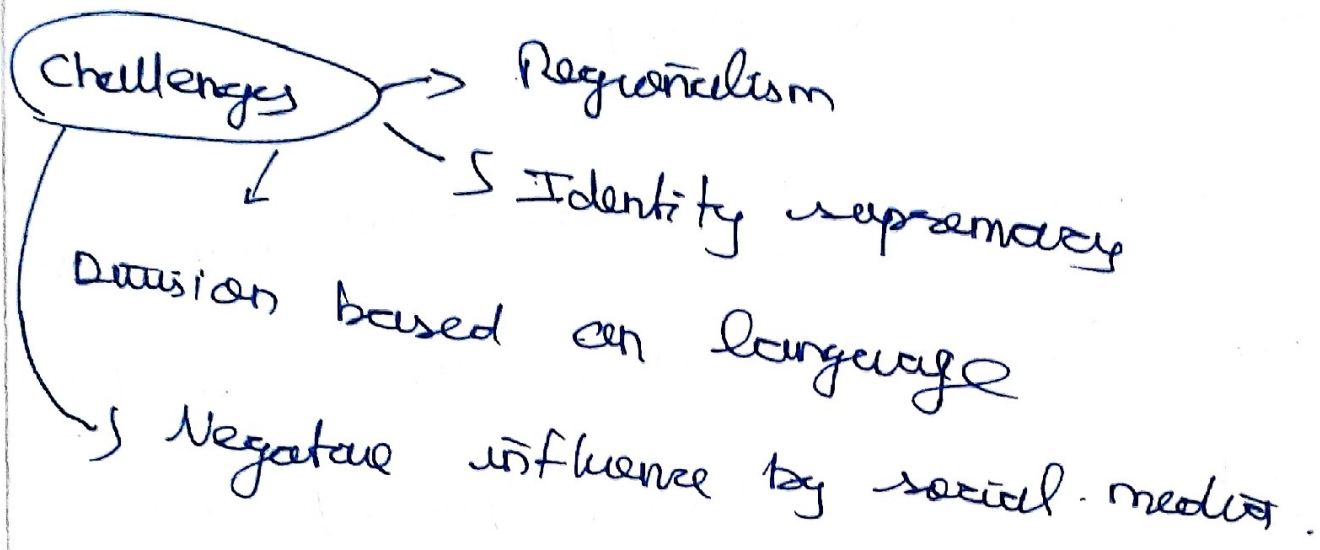 Challenges → Regionalism
→ Identity supremacy
↓
Division based on language
→ Negative influence by social media.